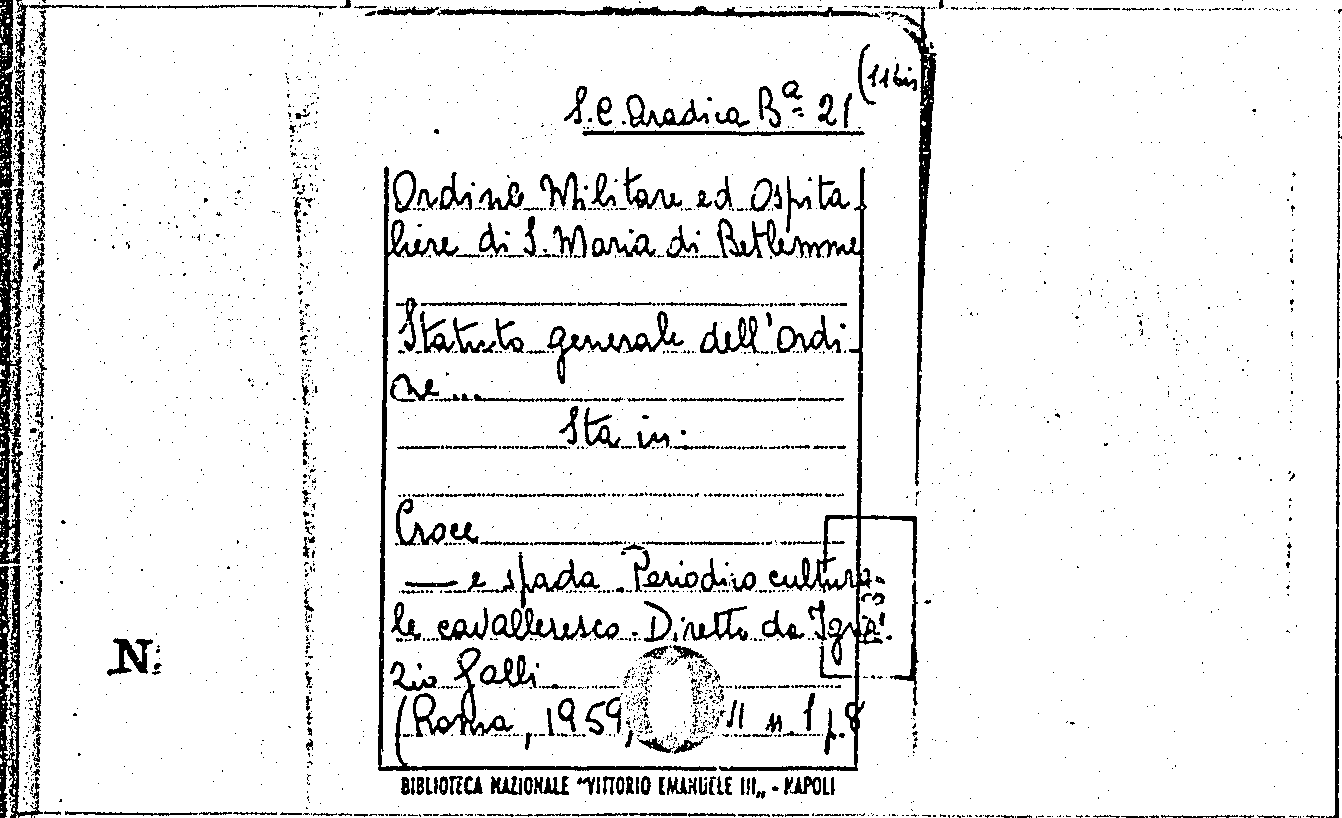 (11 bis
S.C. Aradica Bª 21
Ordine Militare ed Ospita
liere di S. Maria di Betlemme
Statuto generale dell'Ordi
ne...
Sta in:
Croce
— e spada. Periodico cultura-
le cavalleresco. Diretto da Igna
zio Galli.
(Roma, 1959, II n. 1 p. 8
N.
BIBLIOTECA NAZIONALE "VITTORIO EMANUELE III„ - NAPOLI